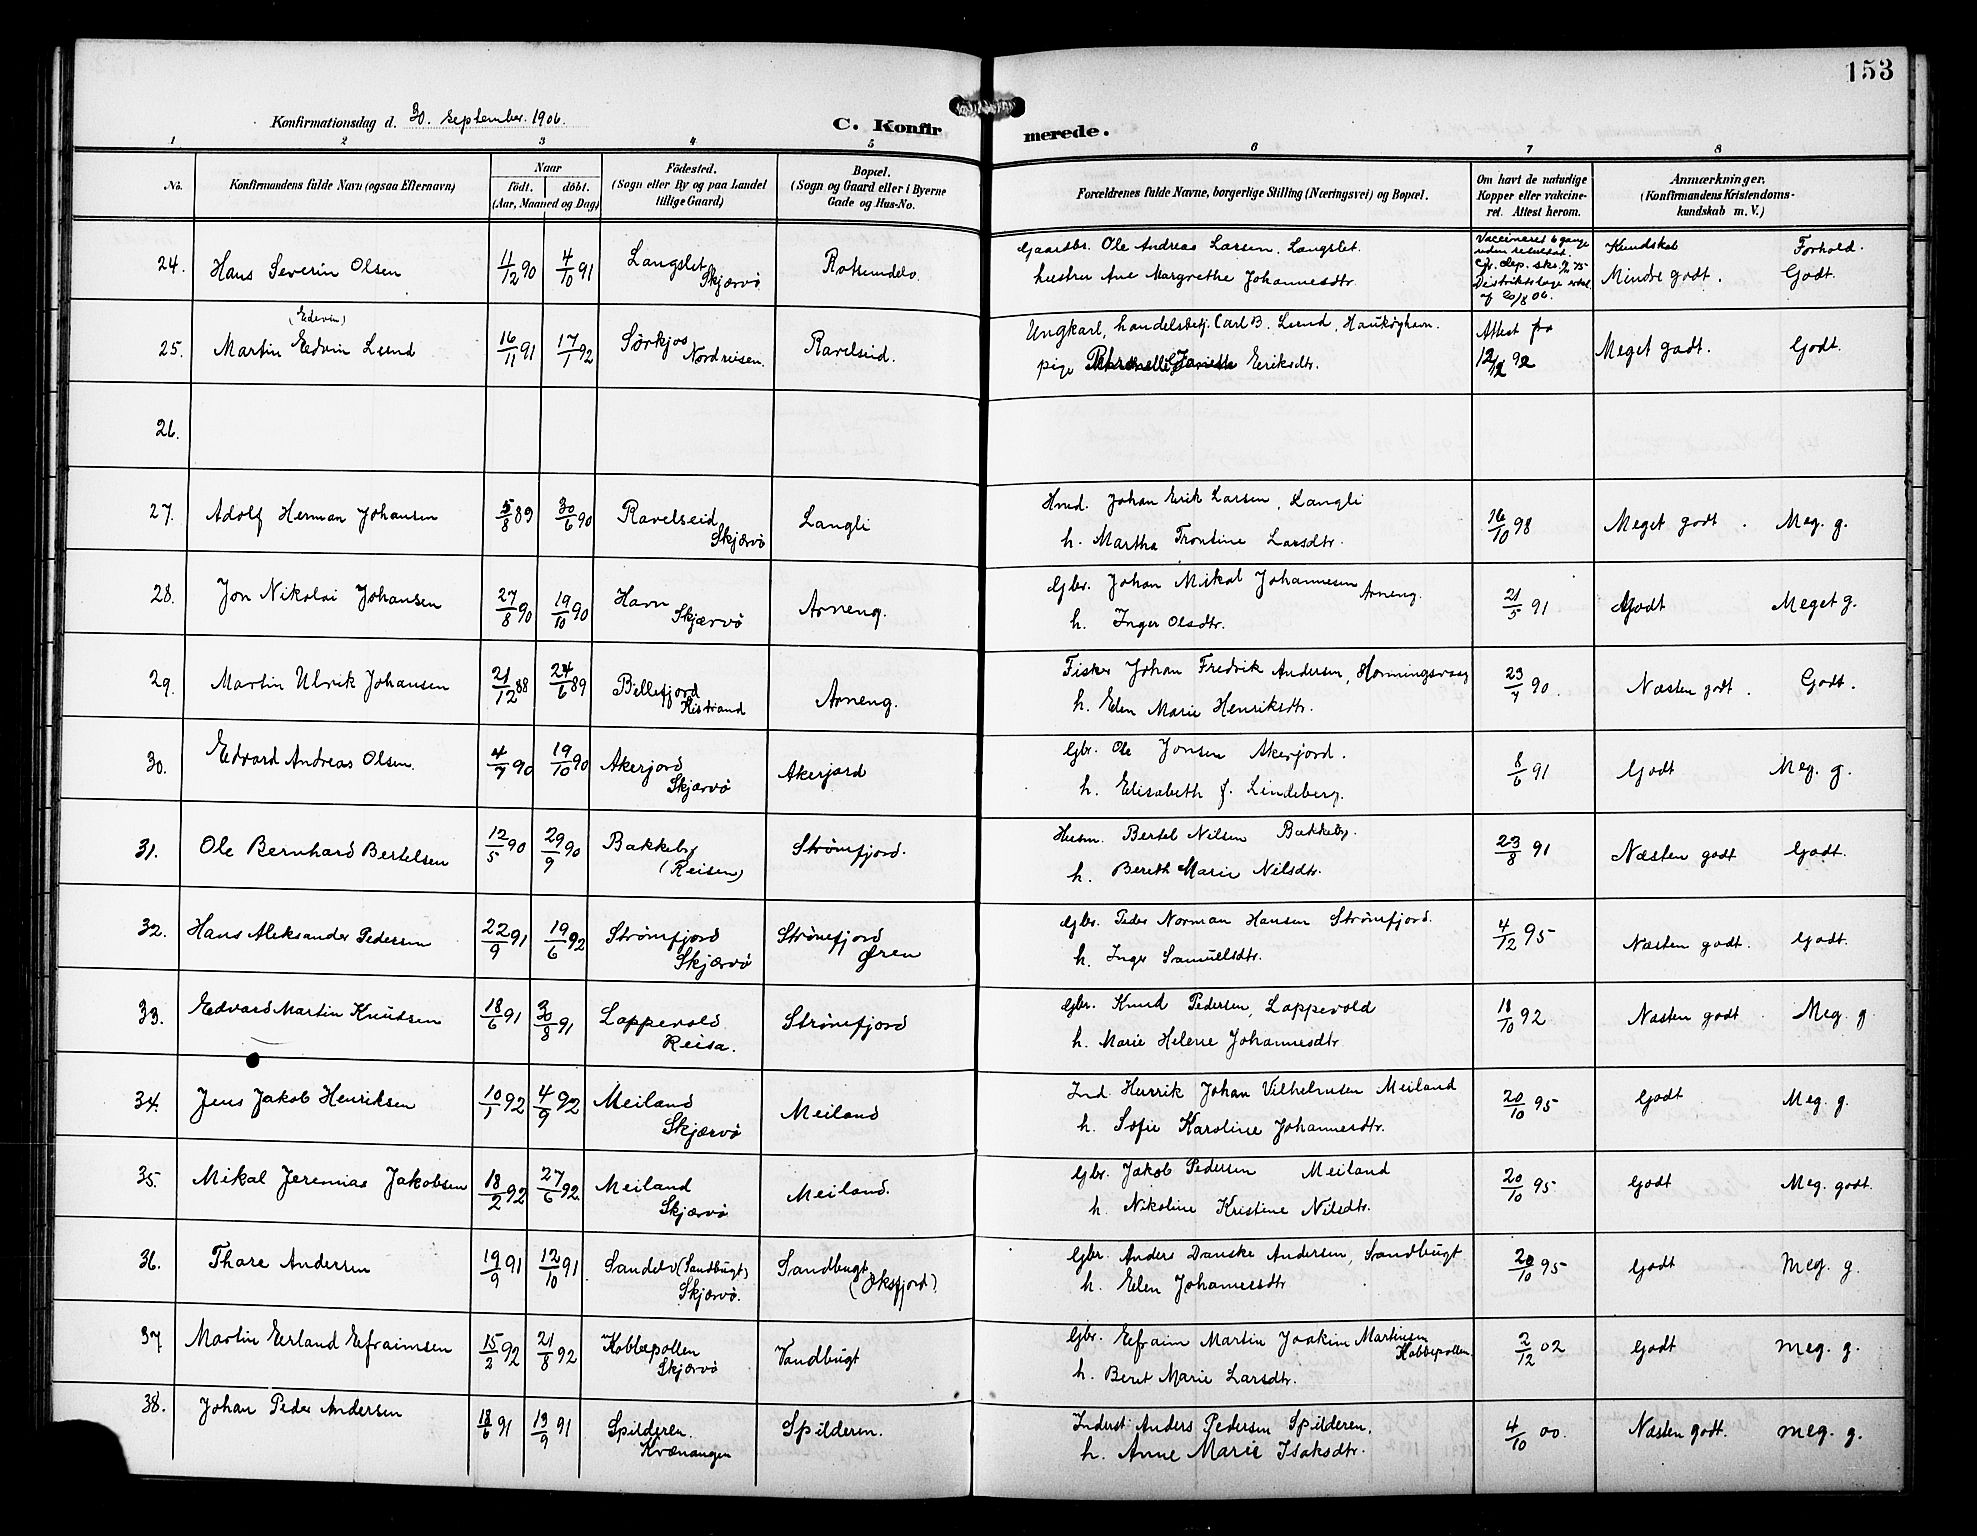 153
Konfirmationsdag d. 30. september. 1906.
C. Konfirmerede.
1 2 3 4 5 6 7 8
No.
Konfirmandens fulde Navn (ogsaa Efternavn)
Naar
født. døbt.
(Aar, Maaned og Dag)
Födested.
(Sogn eller By og paa Landet
tillige Gaard)
Bopæl.
(Sogn og Gaard eller i Byerne
Gade og Hus-No.
Forældrenes fulde Navne, borgerlige Stilling (Næringsvei) og Bopæl.
Om havt de naturlige
Kopper eller vakcine-
ret. Attest herom.
Anmærkninger.
(Konfirmandens Kristendoms-
kundskab m. V.)
Kundskab Forhold.
24. Hans Severin Olsen 11/12 90 4/10 91 Langslet Skjærvö Rotsundelv.
Gaardbr. Ole Andreas Larsen, Langslet.
hustru Ane Margrethe Johannesdtr.
Vaccineret 6 gange
uden resultat.
Mindre godt. Godt.
25. Martin Edvin Lund (Edevin) 16/11 91 17/1 92 Sørkjos Nordreisen. Ravelseid.
Ungkarl, handelsbetj. Carl B. Lund, Haukøyhavn.
pige Eriksdtr.
Attest fra
12/12 92 Meget godt. Godt.
26.
27. Adolf Herman Johansen 5/8 89 30/6 90 Ravelseid Skjærvö Langli
Hmd. Johan Erik Larsen, Langli
h. Martha Trontine Larsdtr.
16/10 98 Meget godt. Meg. g.
28. Jon Nikolai Johansen 27/8 90 19/10 90 Havn Skjærvö Arneng.
Gbr. Johan Mikal Johannesen Arneng.
h. Inger Olsdtr.
21/5 91 Godt Meget g.
29. Martin Ulrik Johansen 21/12 88 24/6 89 Billefjord Kistrand Arneng.
Fisker Johan Fredrik Andersen, Honningsvaag
h. Elen Marie Henriksdtr.
23/7 90. Næsten godt. Godt.
30. Edvard Andreas Olsen. 4/7 90 19/10 90 Akerjord Skjærvö Akerjord
Gbr. Ole Jonsen Akerjord.
h. Elisabeth f. Lindeberg.
8/6 91 Godt Meg. g.
31. Ole Bernhard Bertelsen 12/5 90 29/9 90 Bakkeby (Reisen) Strømfjord.
Husm. Bertel Nilsen Bakkeby.
h. Bereth Marie Nilsdtr.
23/8 91 Næsten godt Godt.
32. Hans Aleksander Pedersen 22/9 91 19/6 92 Strømfjord Skjærvö Strømfjord Øren
Gbr. Peder Norman Hansen Strømfjord.
h. Inger Samuelsdtr.
4/12 95 Næsten godt. Godt.
33. Edvard Martin Knudsen 18/6 91 30/8 91 Lappevold Reisa. Strømfjord
Gbr. Knud Pedersen, Lappevold
h. Marie Helene Johannesdtr
18/10 92 Næsten godt Meg. g
34. Jens Jakob Henriksen 10/1 92 4/9 92 Meiland Skjærvö Meiland
Ind. Henrik Johan Vilhelmsen Meiland
h. Sofie Karoline Johannesdtr.
20/10 95 Godt Meg. g.
35. Mikal Jeremias Jakobsen 18/2 92 27/6 92. Meiland Skjærvö Meiland.
Gbr. Jakob Pedersen Meiland
h. Nikoline Kristine Nilsdtr.
20/10 95 Godt Meg. godt.
36. Thare Andersen 19/9 91 12/10 91 Sandelv (Sandbugt) Skjærvö. Sandbugt (Oksfjord)
Gbr. Anders Danske Andersen, Sandbugt
h. Elen Johannesdtr
20/10 95 Godt Meg. g.
37 Martin Erland Efraimsen 15/2 92 21/8 92 Kobbepollen Skjærvö Vandbugt
Gbr. Efraim Martin Joakim Martinsen Kobbepollen.
h. Beret Marie Larsdtr.
2/12 02 Godt Meg. g.
38. Johan Peder Andersen 18/6 91 13/9 91 Spilderen. Kvænangen Spilderen.
Inderst Anders Pedersen Spilderen,
h. Anne Marie Isaksdtr.
4/10 00. Næsten godt. Meg. g.